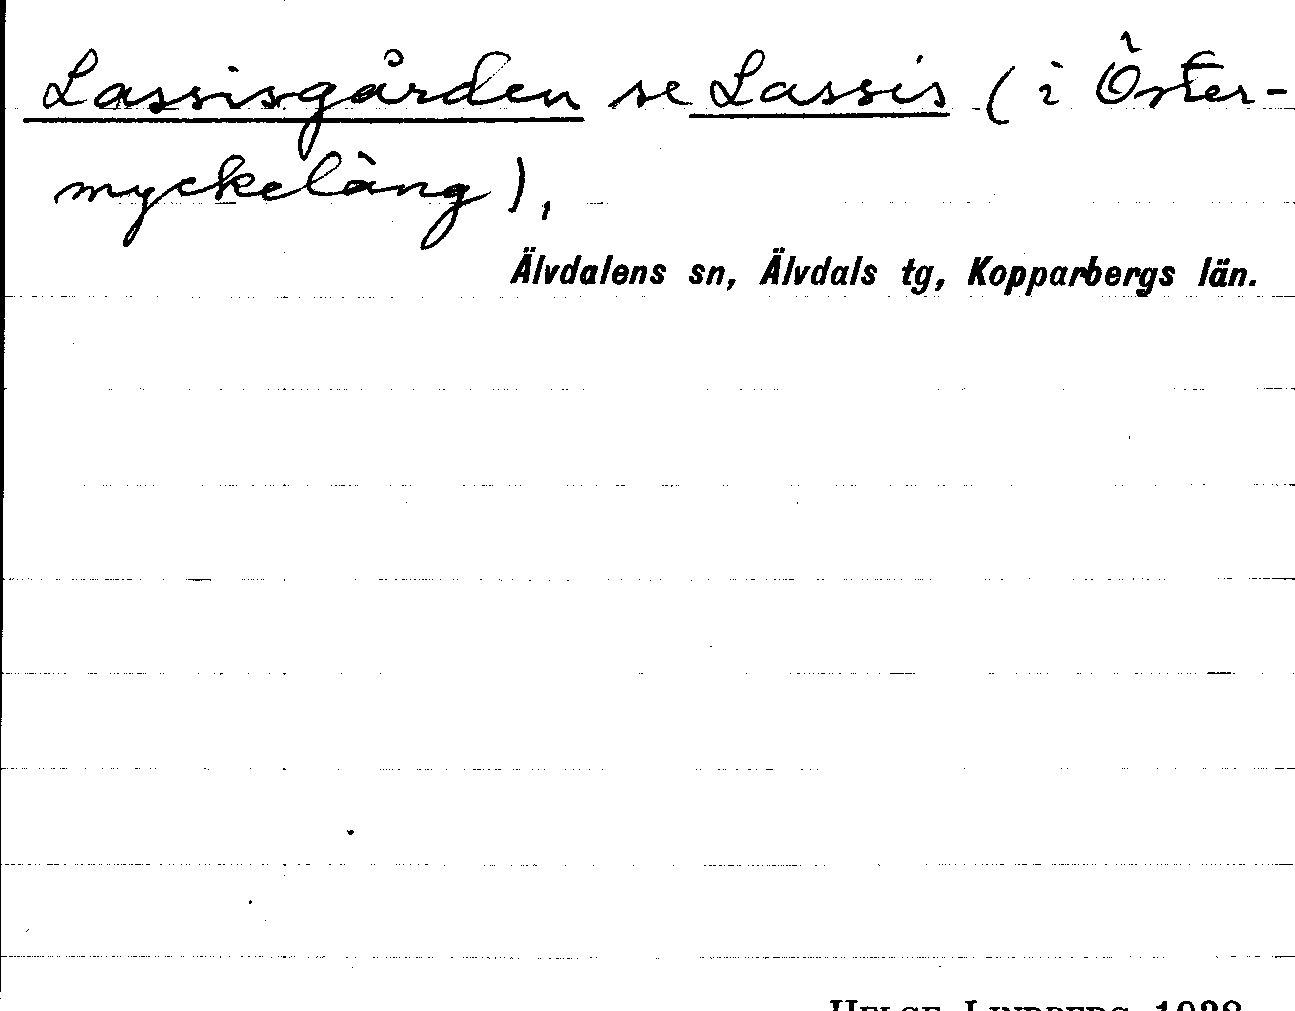 Lassisgården se Lassis (i Öster-
myckeläng),
Älvdalens sn, Älvdals tg, Kopparbergs län.